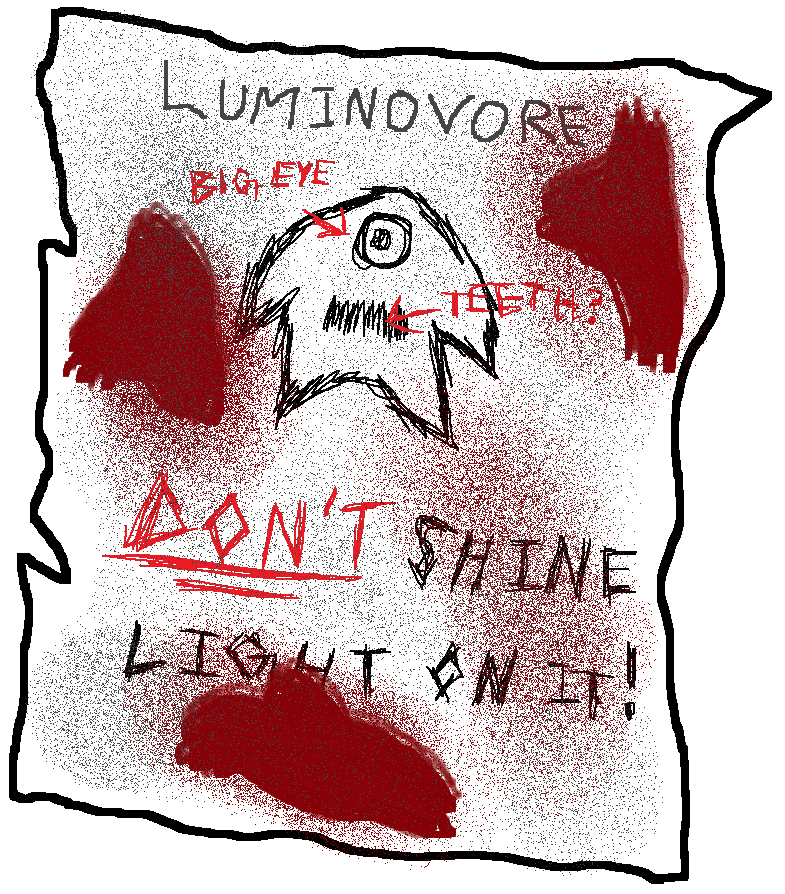 LUMINOVORE
BIG EYE
TEETH?
DON'T SHINE
LIGHT ON IT!